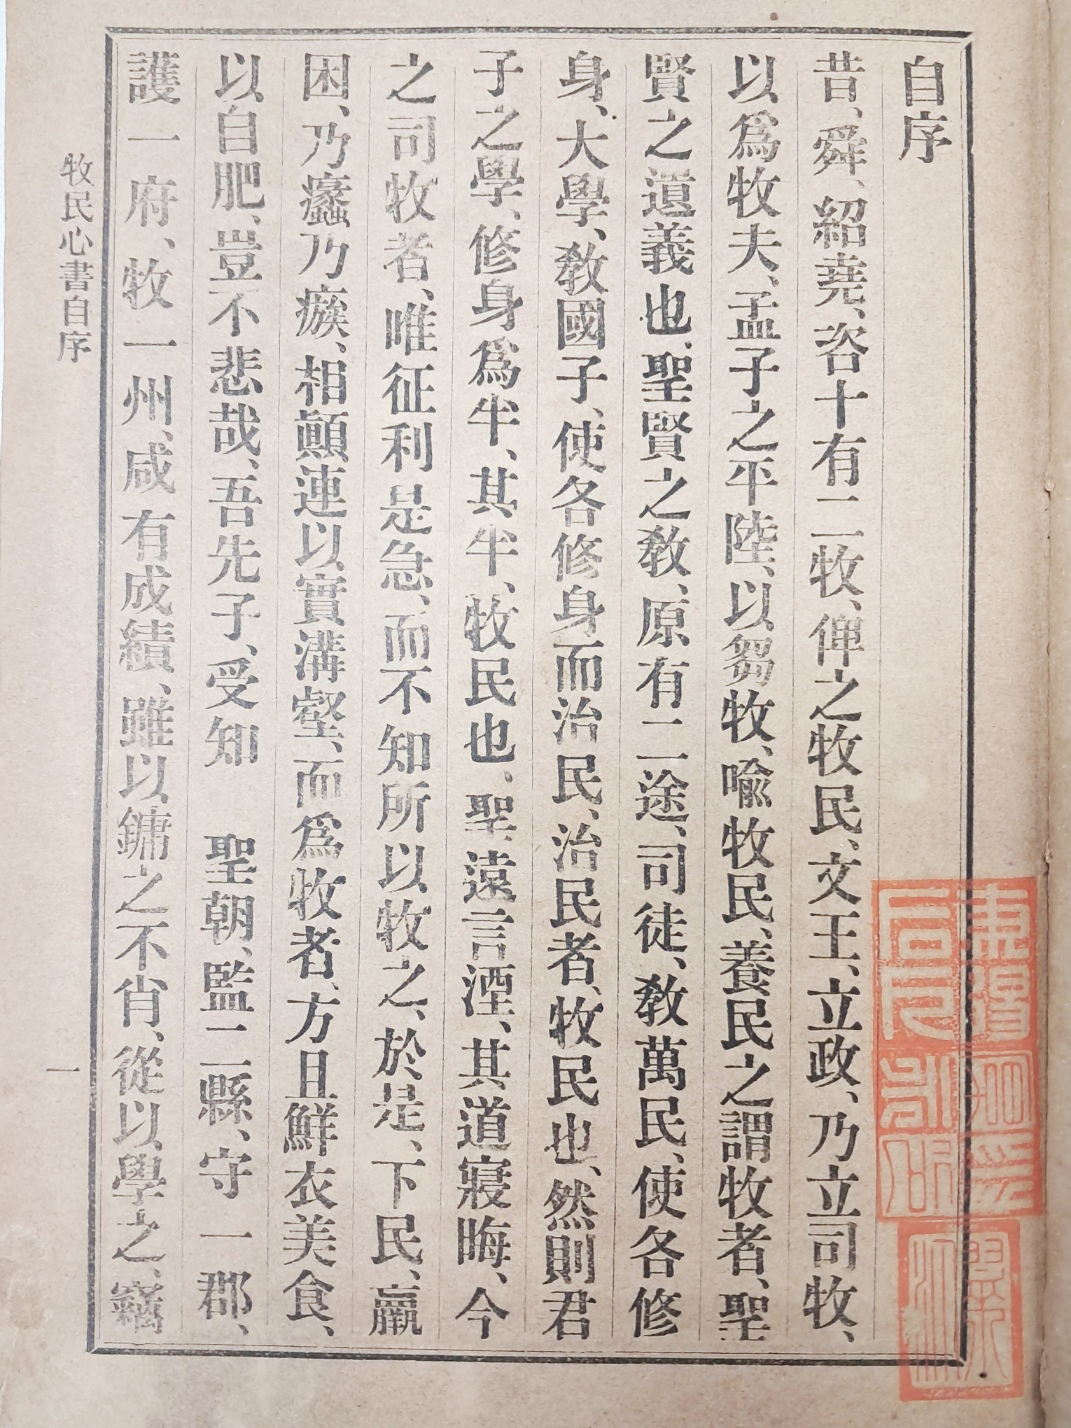 自序
昔、舜、紹堯、咨十有二牧、俾之牧民、文王、立政、乃立司牧、
以爲牧夫、孟子之平陸、以芻牧、喩牧民、養民之謂牧者、聖
賢之遺義也、聖賢之敎、原有二途、司徒、敎萬民、使各修
身、大學、敎國子、使各修身而治民、治民者、牧民也、然則君
子之學、修身爲半、其半、牧民也、聖遠言湮、其道寢晦、今
之司牧者、唯征利是急、而不知所以牧之、於是、下民、羸
困、乃瘰乃瘯、相顚連以實溝壑、而爲牧者、方且鮮衣美食、
以自肥、豈不悲哉、吾先子、受知 聖朝、監二縣、守一郡、
護一府、牧一州、咸有成績、雖以鏞之不肖、從以學之、竊
牧民心書自序
一